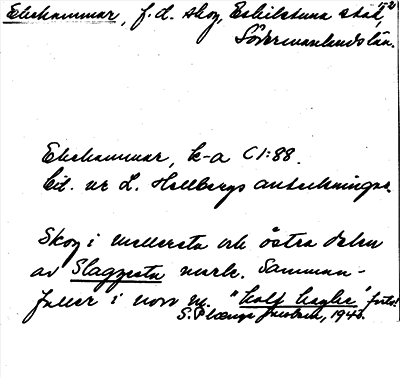 Ekehammar, f.d. skog, Eskilstuna stad,
Södermanlands län.
Ekehammar, k-a C1:88.
Cit. ur L. Hellbergs anteckningar.
Skog i mellersta och östra delen
av Slagsta mark. Samman-
faller i norr m. "Kalf hagke"
S. P. 1945.